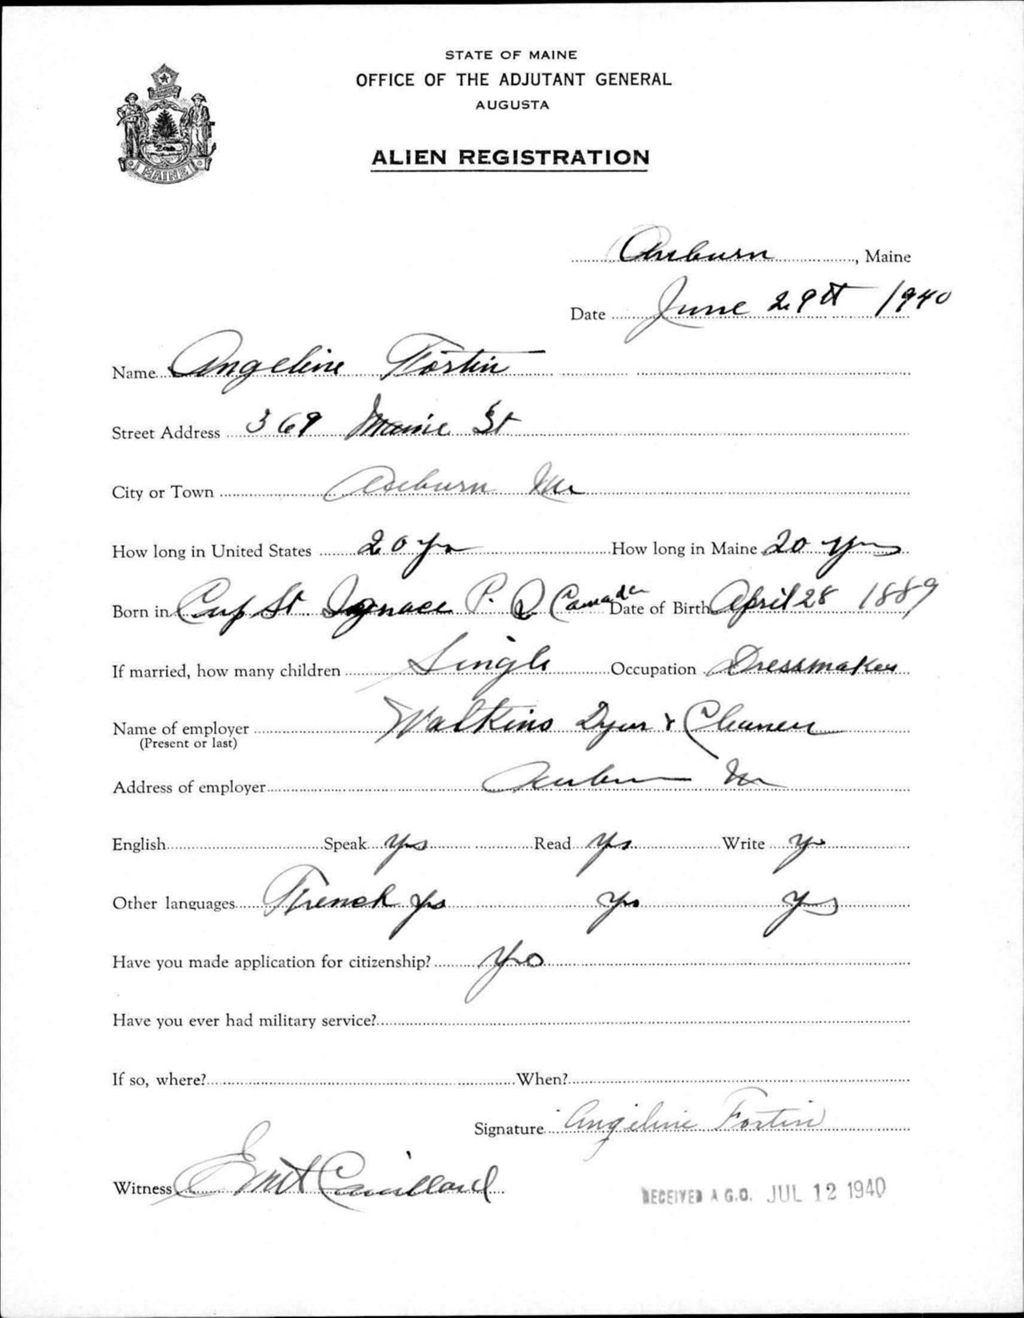 STATE OF MAINE
OFFICE OF THE ADJUTANT GENERAL
AUGUSTA
ALIEN REGISTRATION
MAINE
Auburn, Maine
Date June 29th 1940
Name Angeline Fortin
Street Address 369 Maine St
City or Town Auburn Me
How long in United States 20 yrs How long in Maine 20 yrs
Born in Cap St Ignace P. Q Canada Date of Birth April 28 1889
If married, how many children Single Occupation Dressmaker
Name of employer Watkins Dyer & Cleaner
(Present or last)
Address of employer Auburn Me
English Speak yes Read yes Write yes
Other languages French yes yes yes
Have you made application for citizenship? Yes
Have you ever had military service?
If so, where? When?
Signature Angeline Fortin
Witness
RECEIVED A.G.O. JUL 12 1940